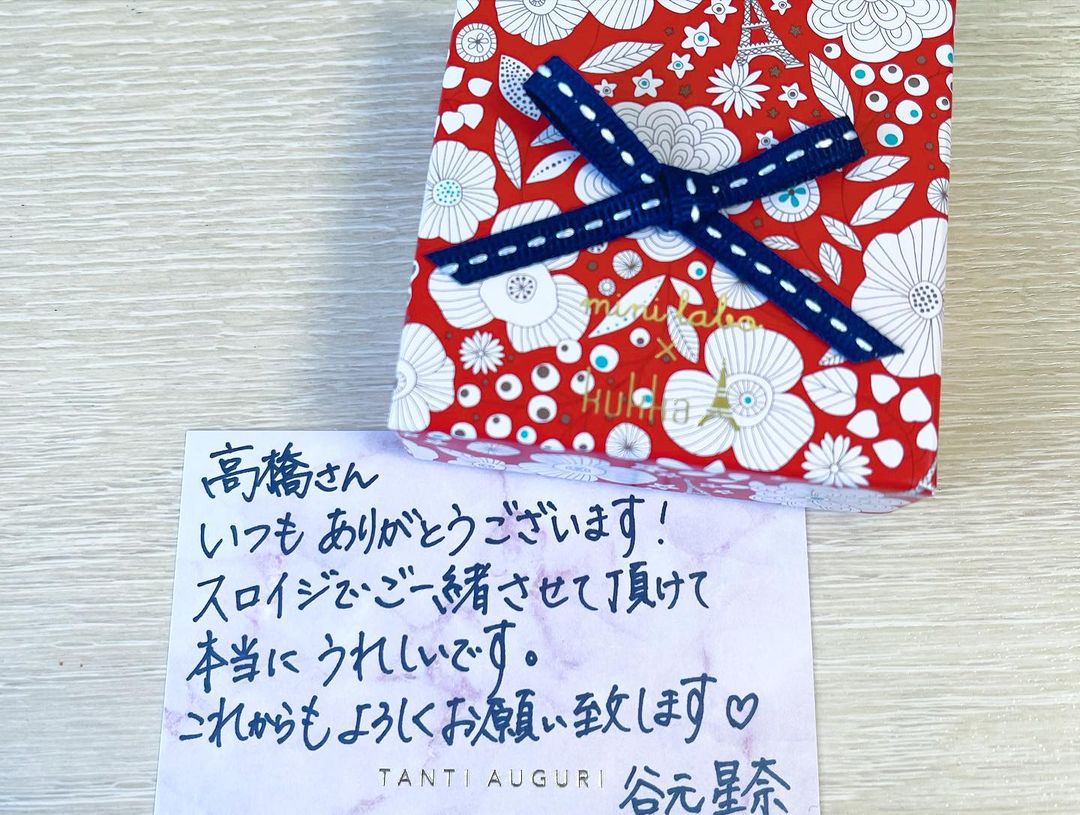 mini labo
×
kukka
高橋さん
いつもありがとうございます!
スロイジでご一緒させて頂けて
本当にうれしいです。
これからもよろしくお願い致します♡
TANTI AUGURI
谷元星奈